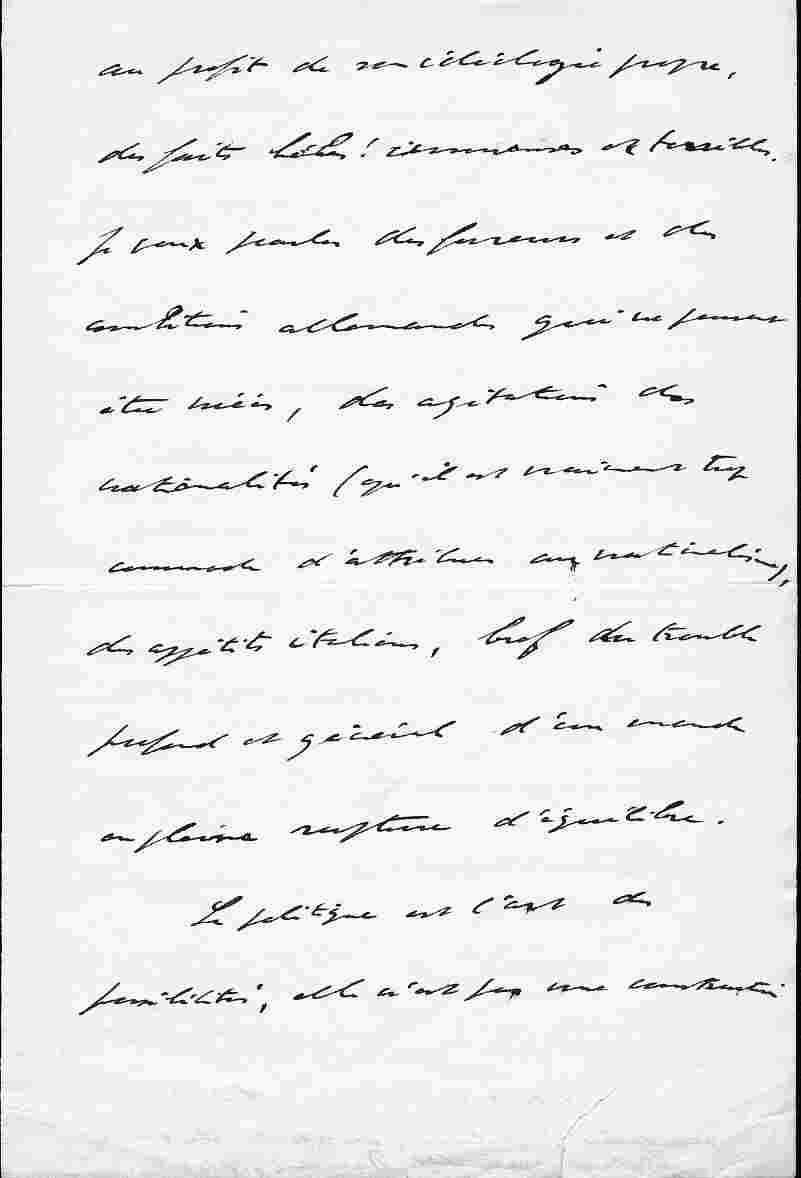 au profit de son idéologie propre,
des faits hélas! immenses et terribles.
Je veux parler des fureurs et des
ambitions allemandes qui ne peuvent
être niées, des agitations des
nationalités (qu'il est vraiment trop
commode d'attribuer aux
des appétits italiens, bref du trouble
profond et général d'un monde
en pleine rupture d'équilibre.
La politique est l'art des
possibilités, elle n'est pas une construction